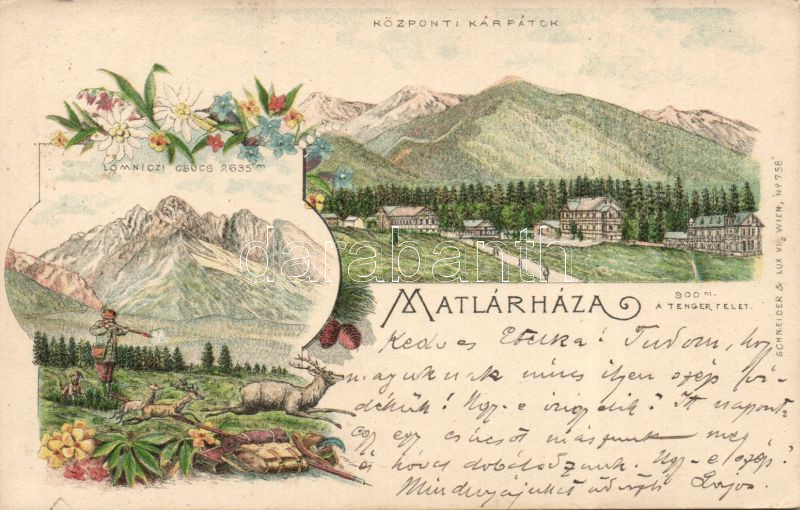 KÖZPONTI KÁRPÁTOK
LOMNICZI CSÚCS 2635 m
darabanth
MATLÁRHÁZA
900 m.
A TENGER FELETT.
SCHNEIDER & LUX VII/2 WIEN, No 758
Kedves Etelka! Tudom, hogy
maguknak nincs ilyen szép vi-
dékük! Ugy-e irigylik? Itt napont
egy egy csúcsot mászunk meg
és hóval dobálódzunk. Ugy-e szép?
Mindnyájukat üdvözli Lajos